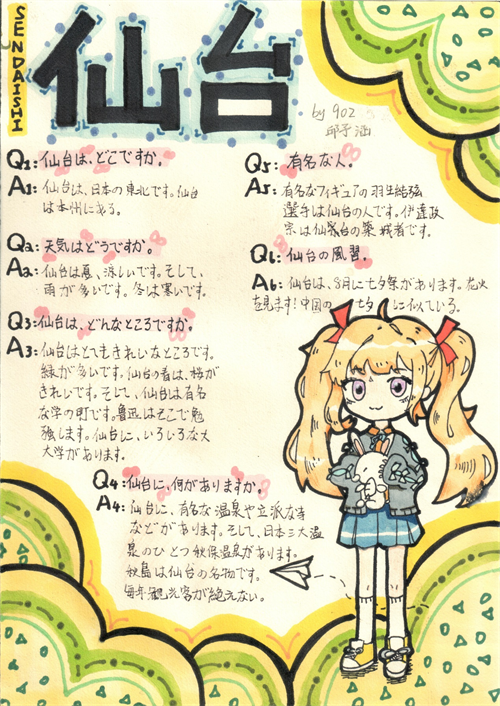 SENDAISHI
仙台
by 902
邱子涵
Q1: 仙台は、どこですか。
A1: 仙台は、日本の東北です。仙台
は本州にある。
Q2: 天気はどうですか。
A2: 仙台は夏、涼しいです。そして、
雨が多いです。冬は寒いです。
Q3: 仙台は、どんなところですか。
A3: 仙台はとてもきれいなところです。
緑が多いです。仙台の春は、桜が
きれいです。そして、仙台は有名
な学の町です。魯迅はそこで勉
強します。仙台に、いろいろな大
大学があります。
Q4: 仙台に、何がありますか。
A4: 仙台に、有名な温泉や立派な寺
などがあります。そして、日本三大温
泉のひとつ秋保温泉があります。
秋島は仙台の名物です。
毎年観光客が絶えない。
Q5: 有名な人。
A5: 有名なフィギュアの羽生結弦
選手は仙台の人です。伊達政
宗は仙台の築城者です。
Q6: 仙台の風習。
A6: 仙台は、8月に七夕祭があります。花火
を見ます!中国の七夕に似ている。